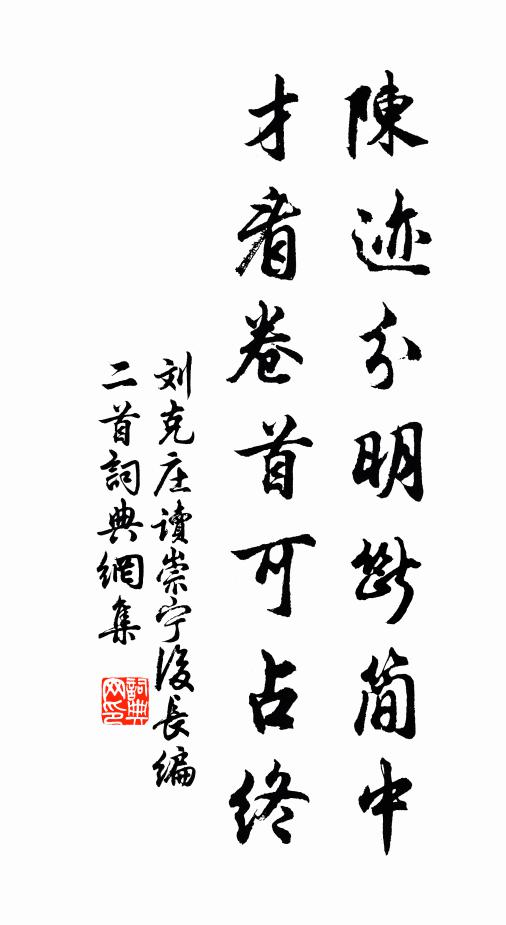 陳迹分明斷简中
才看卷首可占終
刘克庄讀崇宁後長编
二首詞典網集
詞典網印